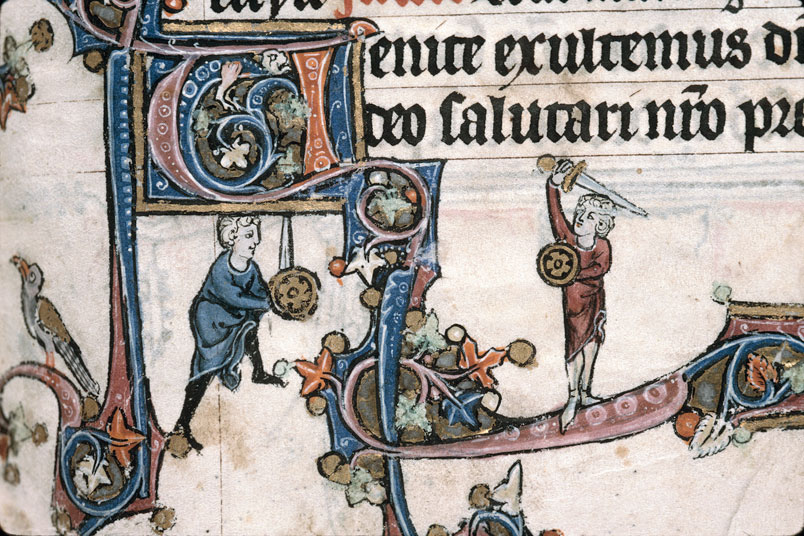 Venite exultemus dn
deo salutari nr̄o pre